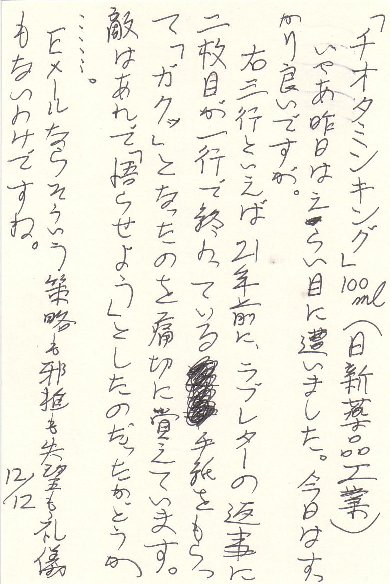 「チオタミンキング」100ml（日新薬品工業）
いやあ昨日はえらい目に遭いました。今日はす
かり良いですが。
右三行といえば21年前に、ラブレターの返事に
二枚目が一行で終わっている手紙をもらっ
て「ガクッ」となったのを痛切に覚えています。
敵はあれで「悟らせよう」としたのだったかどうか
……。
Eメールならそういう策略も邪推も失望も礼儀
もないわけですね。
12/12